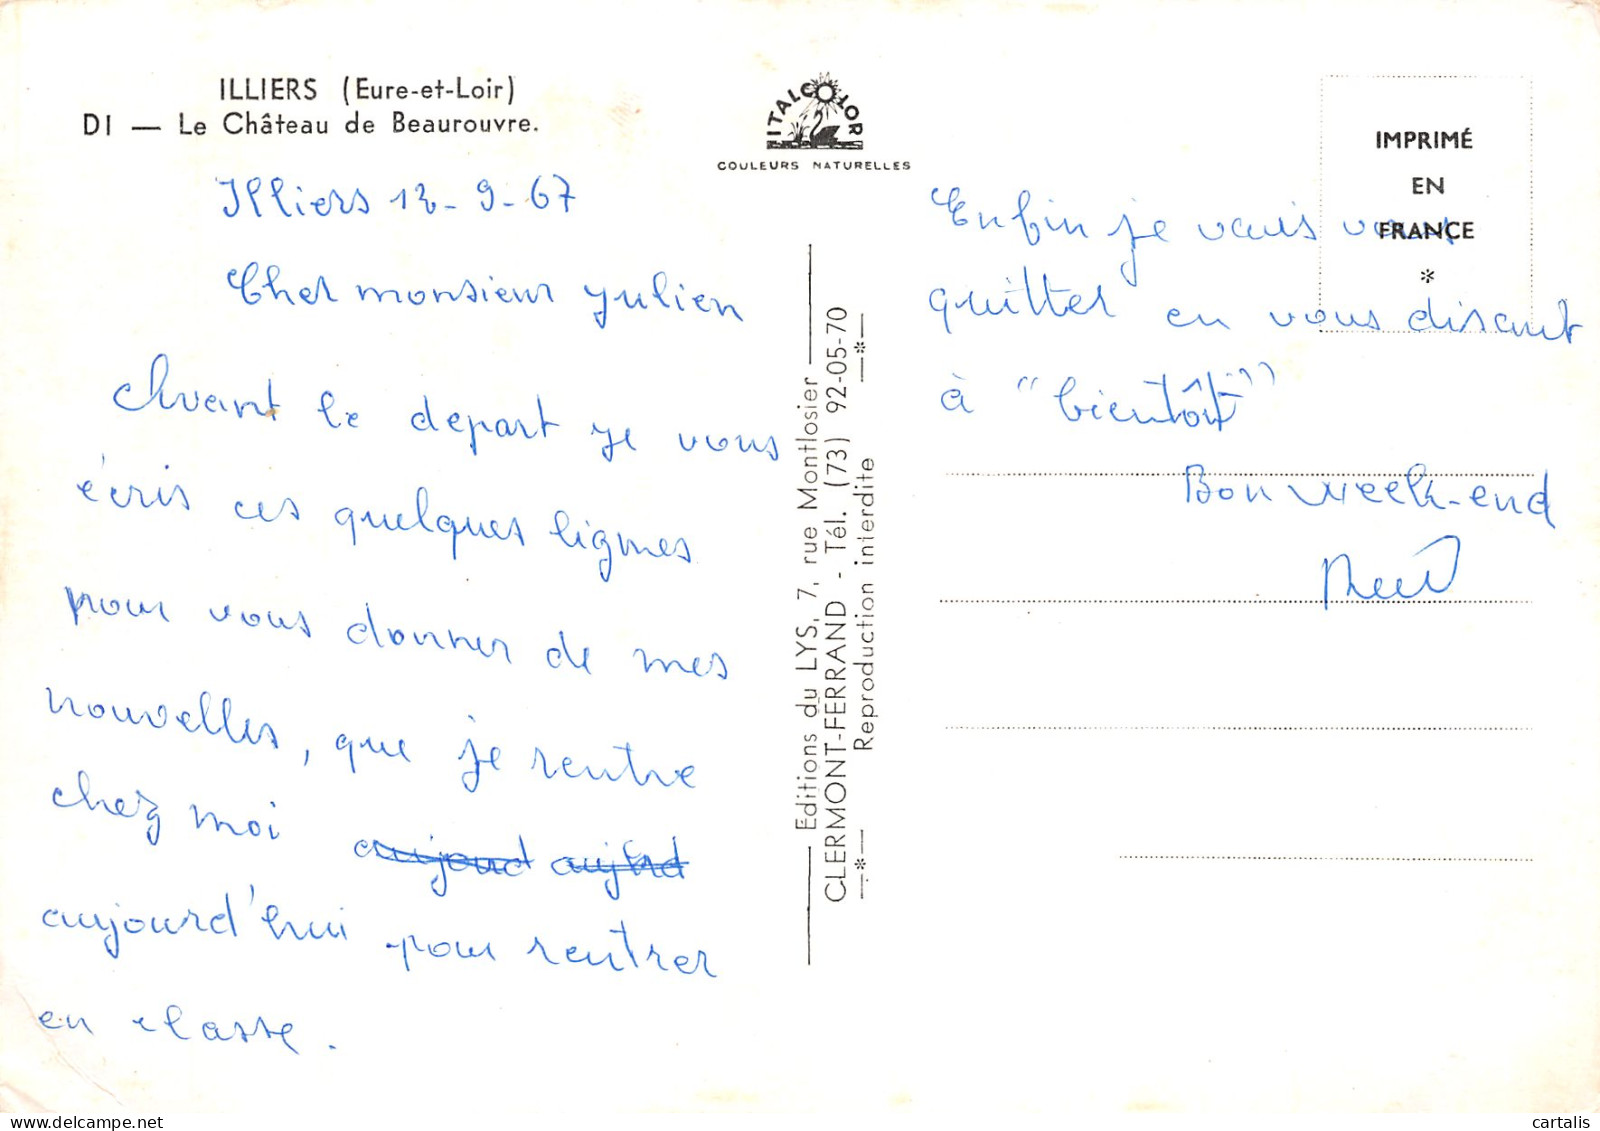 ILLIERS (Eure-et-Loir)
DI — Le Château de Beaurouvre.
Illiers 12-9-67
Cher monsieur Julien
Avant le depart je vous
écris ces quelques lignes
pour vous donner de mes
nouvelles, que je rentre
chez moi aujoud aujhd
aujourd'hui pour rentrer
en classe.
ITALCOLOR
COULEURS NATURELLES
Editions du LYS, 7, rue Montlosier
CLERMONT-FERRAND - Tél. (73) 92-05-70
Reproduction interdite
IMPRIMÉ
EN
FRANCE
*
Enfin je vais vous
quitter en vous disant
à "bientôt"
Bon week-end
cartalis